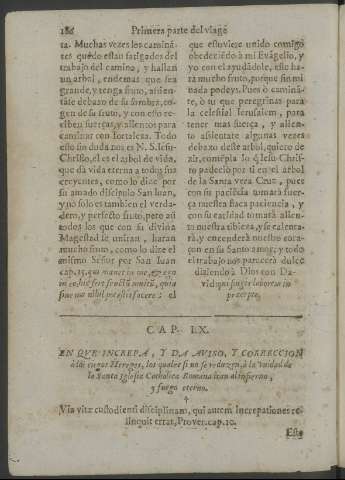 186 Primera parte del viage
ta. Muchas vezes los caminã-
tes quedo estan fatigados del
trabajo del camino, y hallan
un arbol, endemas que sea
grande, y tenga fruto, assien-
tase debaxo de su sombra, co-
gen de su fruto, y con esso re-
ciben fuerças, y alientos para
caminar con fortaleza. Todo
esso sin duda nos es N. S. Iesu-
Christo, el es el arbol de vida,
que dà vida eterna a todos sus
creyentes, como lo dize por
su amado discipulo San Iuan,
y no solo es tambien el verda-
dero, y perfecto fruto, pero assi
todos los que con su divina
Magestad se miran, haran
mucho fruto, como lo dize el
mismo Señor por San Iuan
cap. 15. qui manet in me, & ego
in eo, hic fert fructũ multũ, quia
sine me nihil potestis facere: el
que estuviere unido comigo
obedeciẽdo a mi Evãgelio, y
yo con el ayudãdole, este ha-
rà mucho fruto, porque sin mi
nada podeys. Pues ò caminã-
te, ò tu que peregrinas para
la celestial Ierusalem, para
tener mas fuerça, y alien-
to assientate algunas vezes
debaxo deste arbol, quiero de-
zir, contẽpla lo q̃ Iesu-Chris-
to padeciò por ti en el arbol
de la Santa vera Cruz, pues
con su paciẽcia tomarà fuer-
ça nuestra flaca paciencia, y
con su caridad tomarà alien-
to nuestra tibieza, y se calenta-
rà, y encenderà nuestro cora-
çon en su Santo amor, y todo
el trabajo nos parecerà dulce
diziendo à Dios con Da-
vid: qui fingis laborem in
præcepto.
CAP. LX.
EN QVE INCREPA, Y DA AVISO, Y CORRECCION
à los ciegos Hereges, los quales si no se reduzen, à la verdad de
la Santa Iglesia Catholica Romana iran al infierno,
y fuego eterno.
Via vitæ custodienti disciplinam, qui autem increpationes re-
linquit errat, Prover. cap. 10.
Este